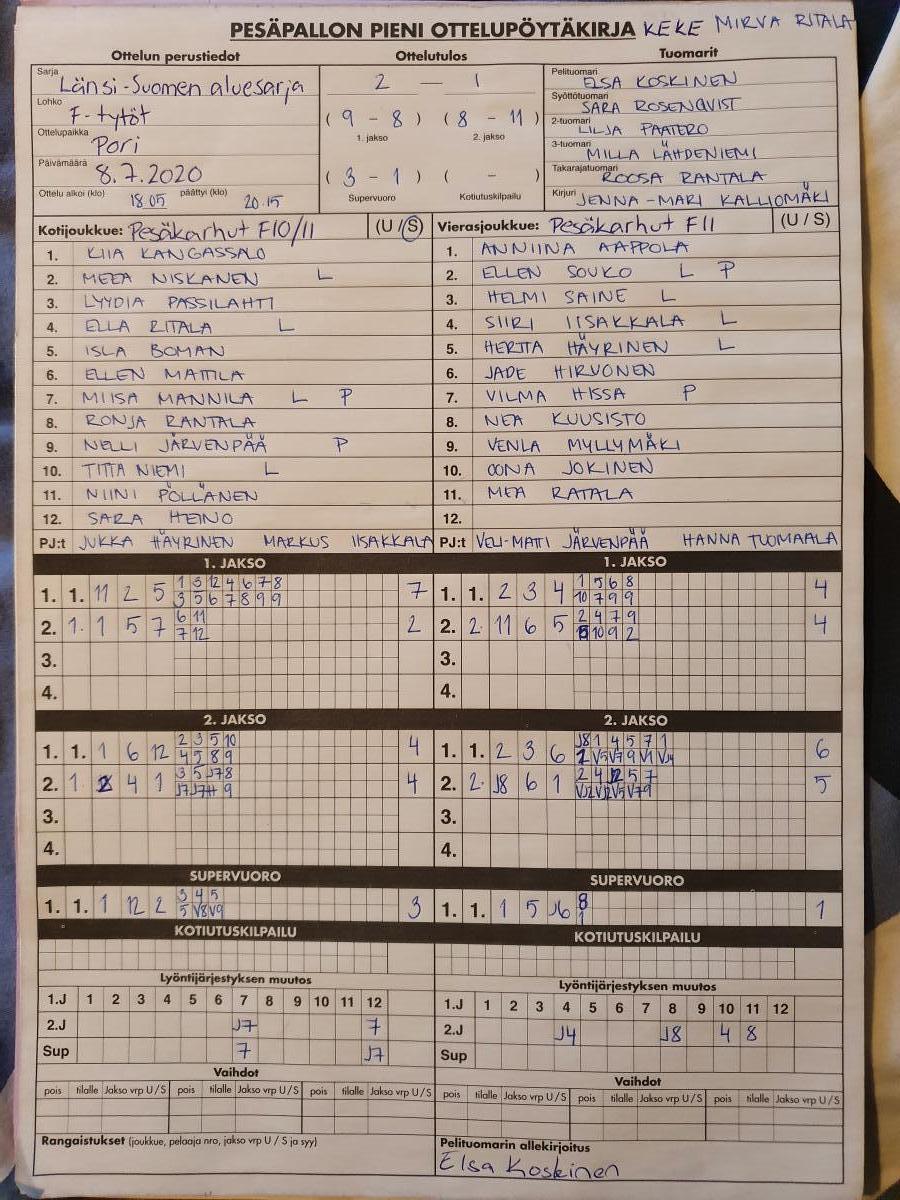 PESÄPALLON PIENI OTTELUPÖYTÄKIRJA KEKE MIRVA RITALA
Ottelun perustiedot Ottelutulos Tuomarit
Sarja Länsi-Suomen aluesarja
Lohko F-tytöt
Ottelupaikka Pori
Päivämäärä 8.7.2020
Ottelu alkoi (klo) 18.05 päättyi (klo) 20.15
2 — 1
( 9 - 8 ) ( 8 - 11 )
1. jakso 2. jakso
( 3 - 1 ) ( - )
Supervuoro Kotiutuskilpailu
Pelituomari ELSA KOSKINEN
Syöttötuomari SARA ROSENQVIST
2-tuomari LILJA PAATERO
3-tuomari MILLA LÄHDENIEMI
Takarajatuomari ROOSA RANTALA
Kirjuri JENNA-MARI KALLIOMÄKI
Kotijoukkue: Pesäkarhut F10/11 (U / S)
1. KIIA KANGASSALO
2. MEEA NISKANEN L
3. LYYDIA PASSILAHTI
4. ELLA RITALA L
5. ISLA BOMAN
6. ELLEN MATTILA
7. MIISA MANNILA L P
8. RONJA RANTALA
9. NELLI JÄRVENPÄÄ P
10. TITTA NIEMI L
11. NIINI PÖLLÄNEN
12. SARA HEINO
PJ:t JUKKA HÄYRINEN MARKUS IISAKKALA
Vierasjoukkue: Pesäkarhut F11 (U / S)
1. ANNIINA AAPPOLA
2. ELLEN SOUKO L P
3. HELMI SAINE L
4. SIIRI IISAKKALA L
5. HERTTA HÄYRINEN L
6. JADE HIRVONEN
7. VILMA HISSA P
8. NEA KUUSISTO
9. VENLA MYLLYMÄKI
10. OONA JOKINEN
11. MEA RATALA
12.
PJ:t VELI-MATTI JÄRVENPÄÄ HANNA TUOMAALA
1. JAKSO
1. 1. 11 2 5 1 3 12 4 6 7 8 7
3 5 6 7 8 9 9
2. 1. 1 5 7 6 11 2
7 12
3.
4.
1. JAKSO
1. 1. 2 3 4 1 5 6 8 4
10 7 9 9
2. 2. 11 6 5 2 4 7 9 4
10 9 2
3.
4.
2. JAKSO
1. 1. 1 6 12 2 3 5 10 4
4 5 8 9
2. 1. 2 4 1 3 5 J7 8 4
9
3.
4.
2. JAKSO
1. 1. 2 3 6 J8 1 4 5 7 1 6
2 V5 V7 9 V1
2. 2. J8 6 1 2 4 5 7 5
3.
4.
SUPERVUORO
1. 1. 1 12 2 3 4 5 3
5 V8 V9
SUPERVUORO
1. 1. 1 5 J6 8 1
1
KOTIUTUSKILPAILU
Lyöntijärjestyksen muutos
1.J 1 2 3 4 5 6 7 8 9 10 11 12
2.J J7 7
Sup 7 J7
Vaihdot
pois tilalle Jakso vrp U / S pois tilalle Jakso vrp U / S pois tilalle Jakso vrp U / S
Rangaistukset (joukkue, pelaaja nro, jakso vrp U / S ja syy)
KOTIUTUSKILPAILU
Lyöntijärjestyksen muutos
1.J 1 2 3 4 5 6 7 8 9 10 11 12
2.J J4 J8 4 8
Sup
Vaihdot
pois tilalle Jakso vrp U / S pois tilalle Jakso vrp U / S pois tilalle Jakso vrp U / S
Pelituomarin allekirjoitus
Elsa Koskinen